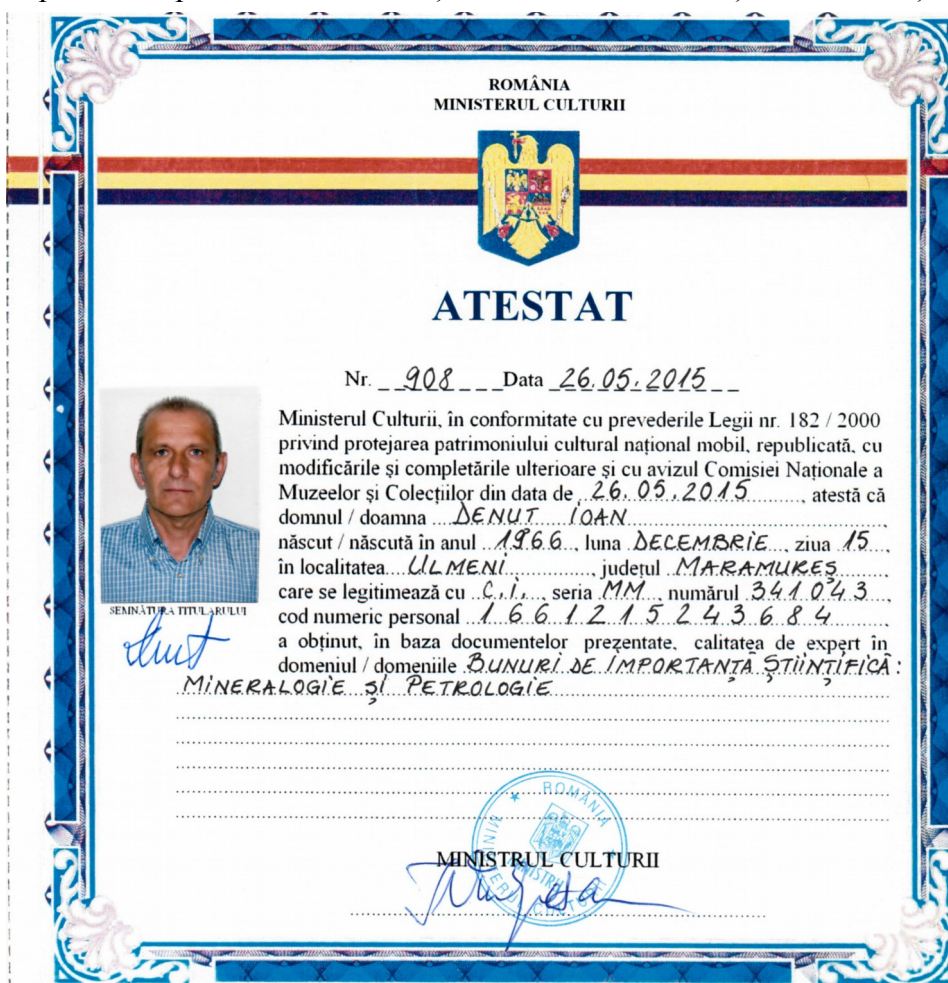 ROMÂNIA
MINISTERUL CULTURII
ATESTAT
Nr. 908 Data 26.05.2015
Ministerul Culturii, în conformitate cu prevederile Legii nr. 182 / 2000
privind protejarea patrimoniului cultural național mobil, republicată, cu
modificările și completările ulterioare și cu avizul Comisiei Naționale a
Muzeelor și Colecțiilor din data de 26.05.2015, atestă că
domnul / doamna DENUT IOAN,
născut / născută în anul 1966, luna DECEMBRIE, ziua 15,
în localitatea ULMENI, județul MARAMUREȘ
care se legitimează cu C.I., seria MM, numărul 341043,
cod numeric personal 1661215243684,
a obținut, în baza documentelor prezentate, calitatea de expert în
domeniul / domeniile BUNURI DE IMPORTANȚĂ ȘTIINȚIFICĂ:
MINERALOGIE ȘI PETROLOGIE
SEMNĂTURA TITULARULUI
ROMÂNIA
MINISTERUL CULTURII
MINISTRUL CULTURII